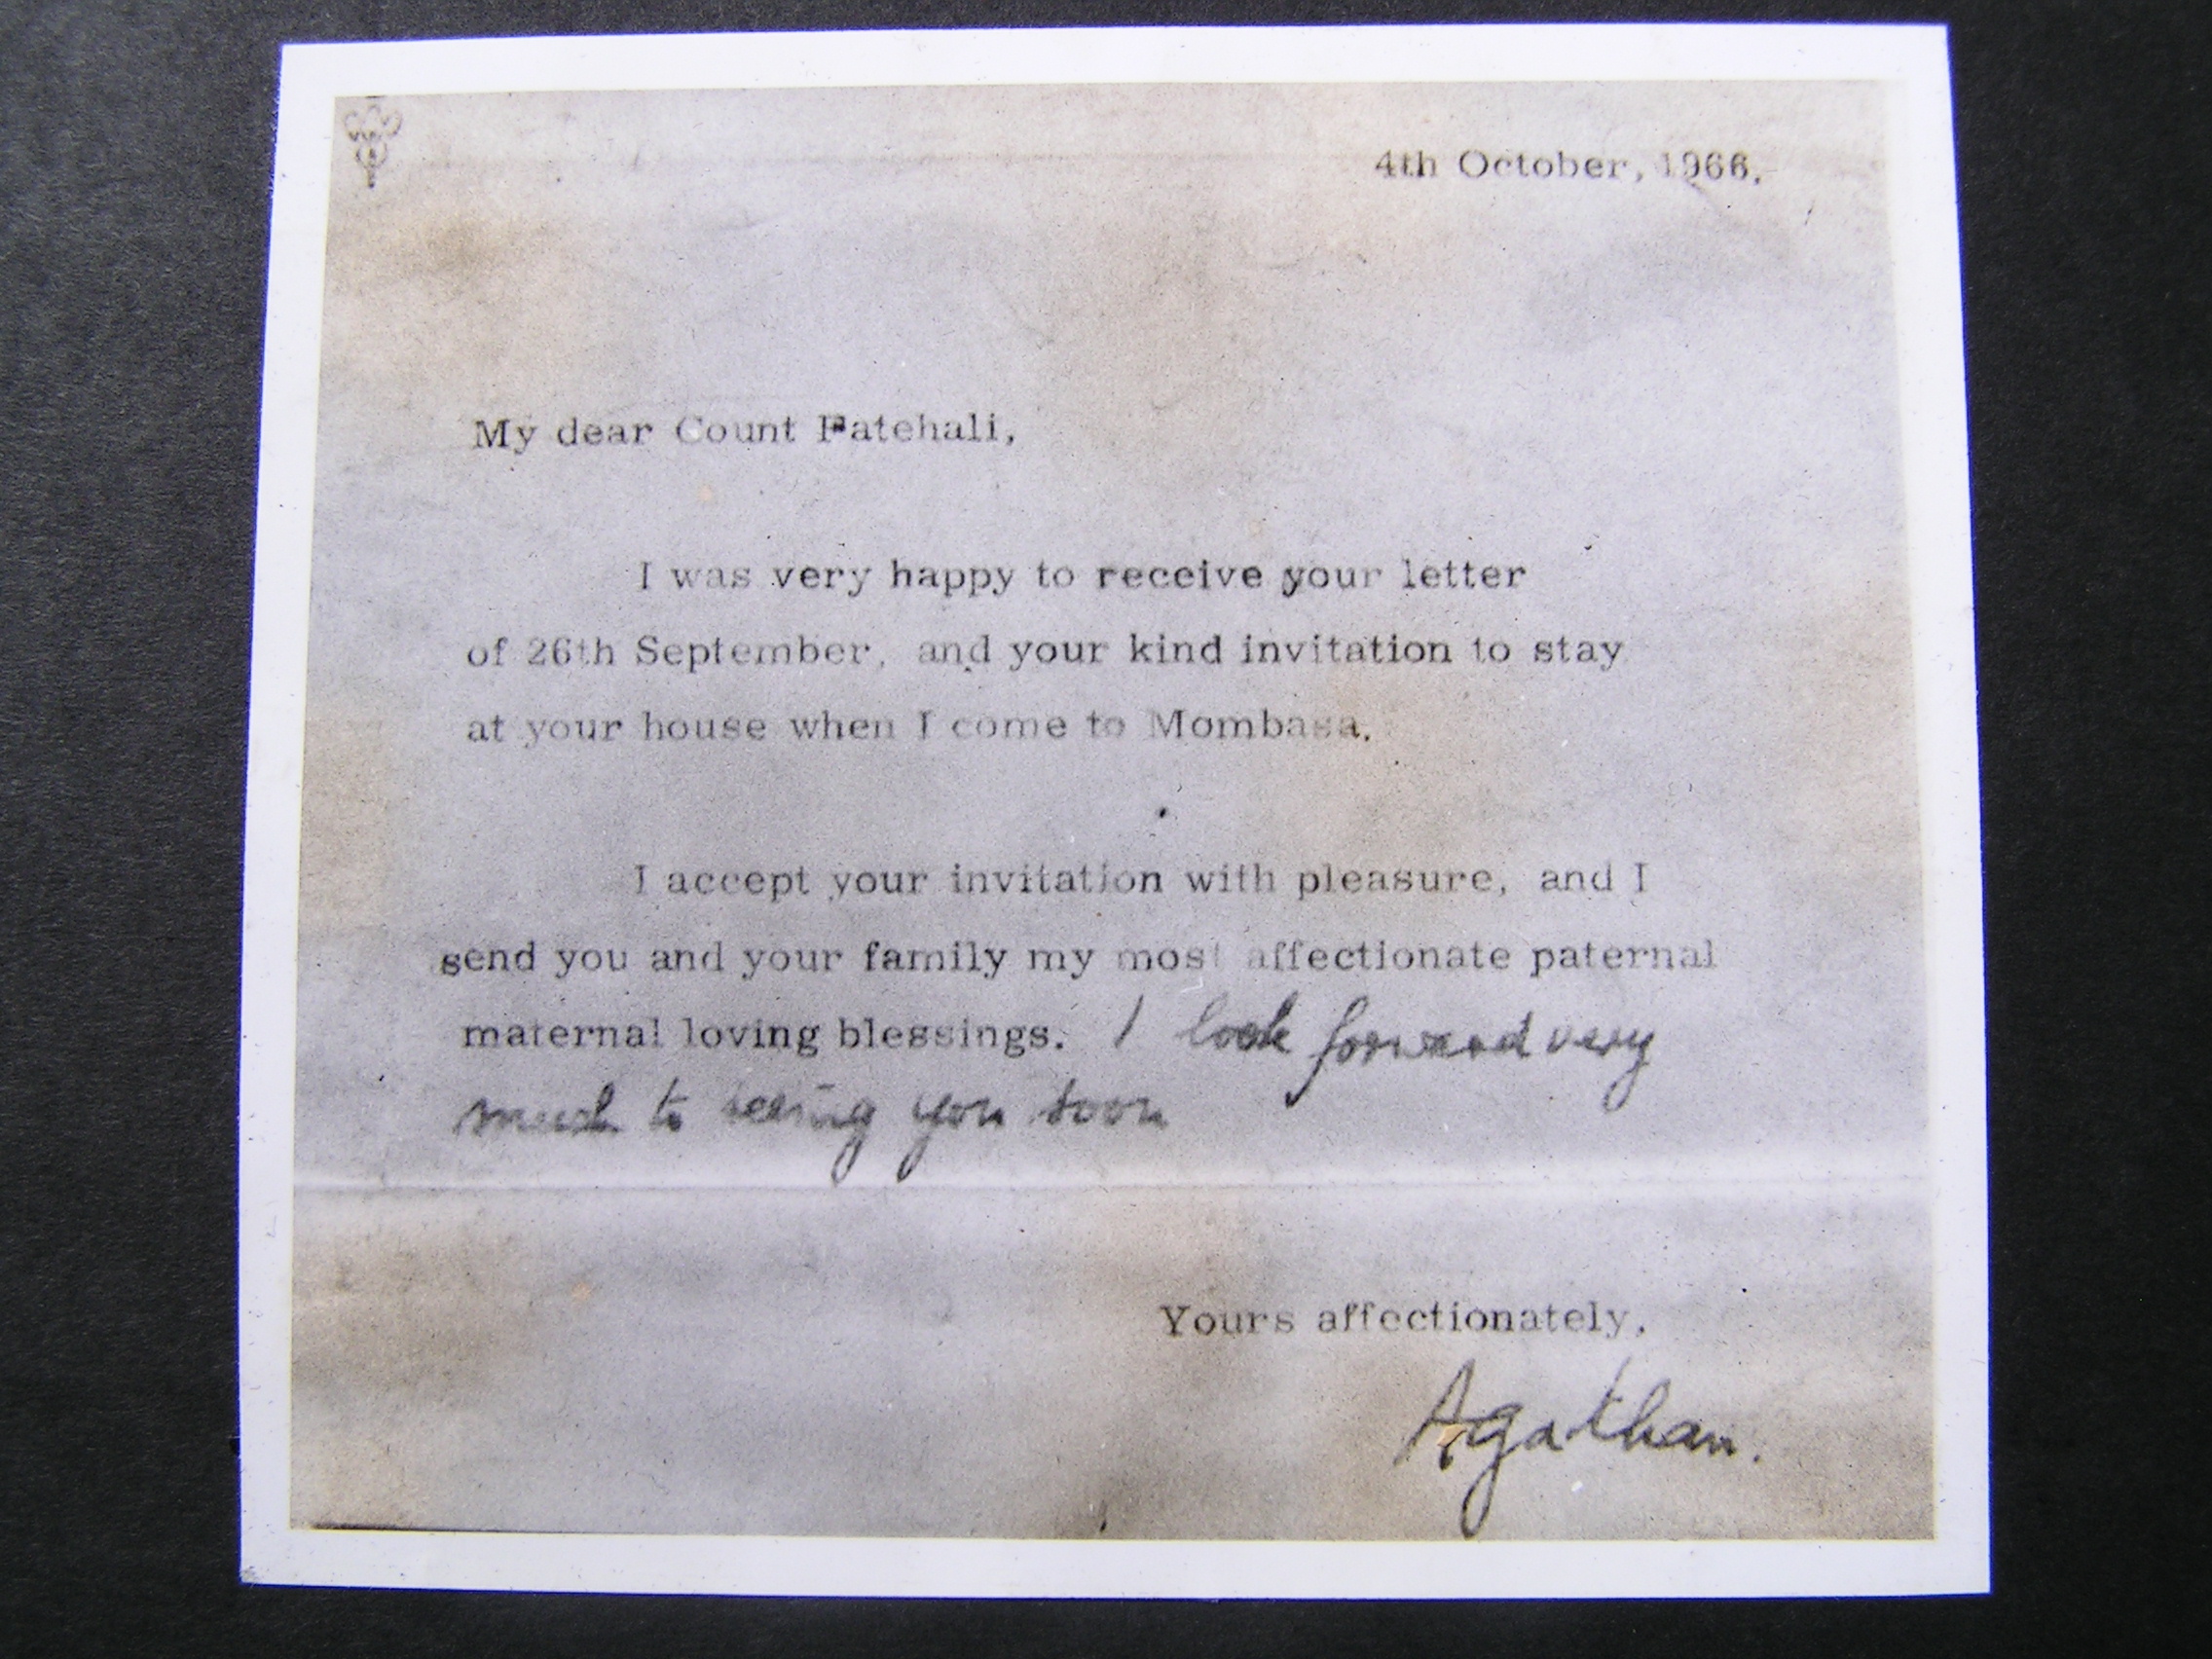 4th October, 1966.
My dear Count Fatehali,
I was very happy to receive your letter
of 26th September, and your kind invitation to stay
at your house when I come to Mombasa.
I accept your invitation with pleasure, and I
send you and your family my most affectionate paternal
maternal loving blessings. I look forward very
much to seeing you soon
Yours affectionately,
Aga Khan.